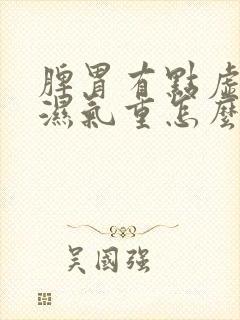 脾胃有點虛
濕氣重怎麼
吴國强